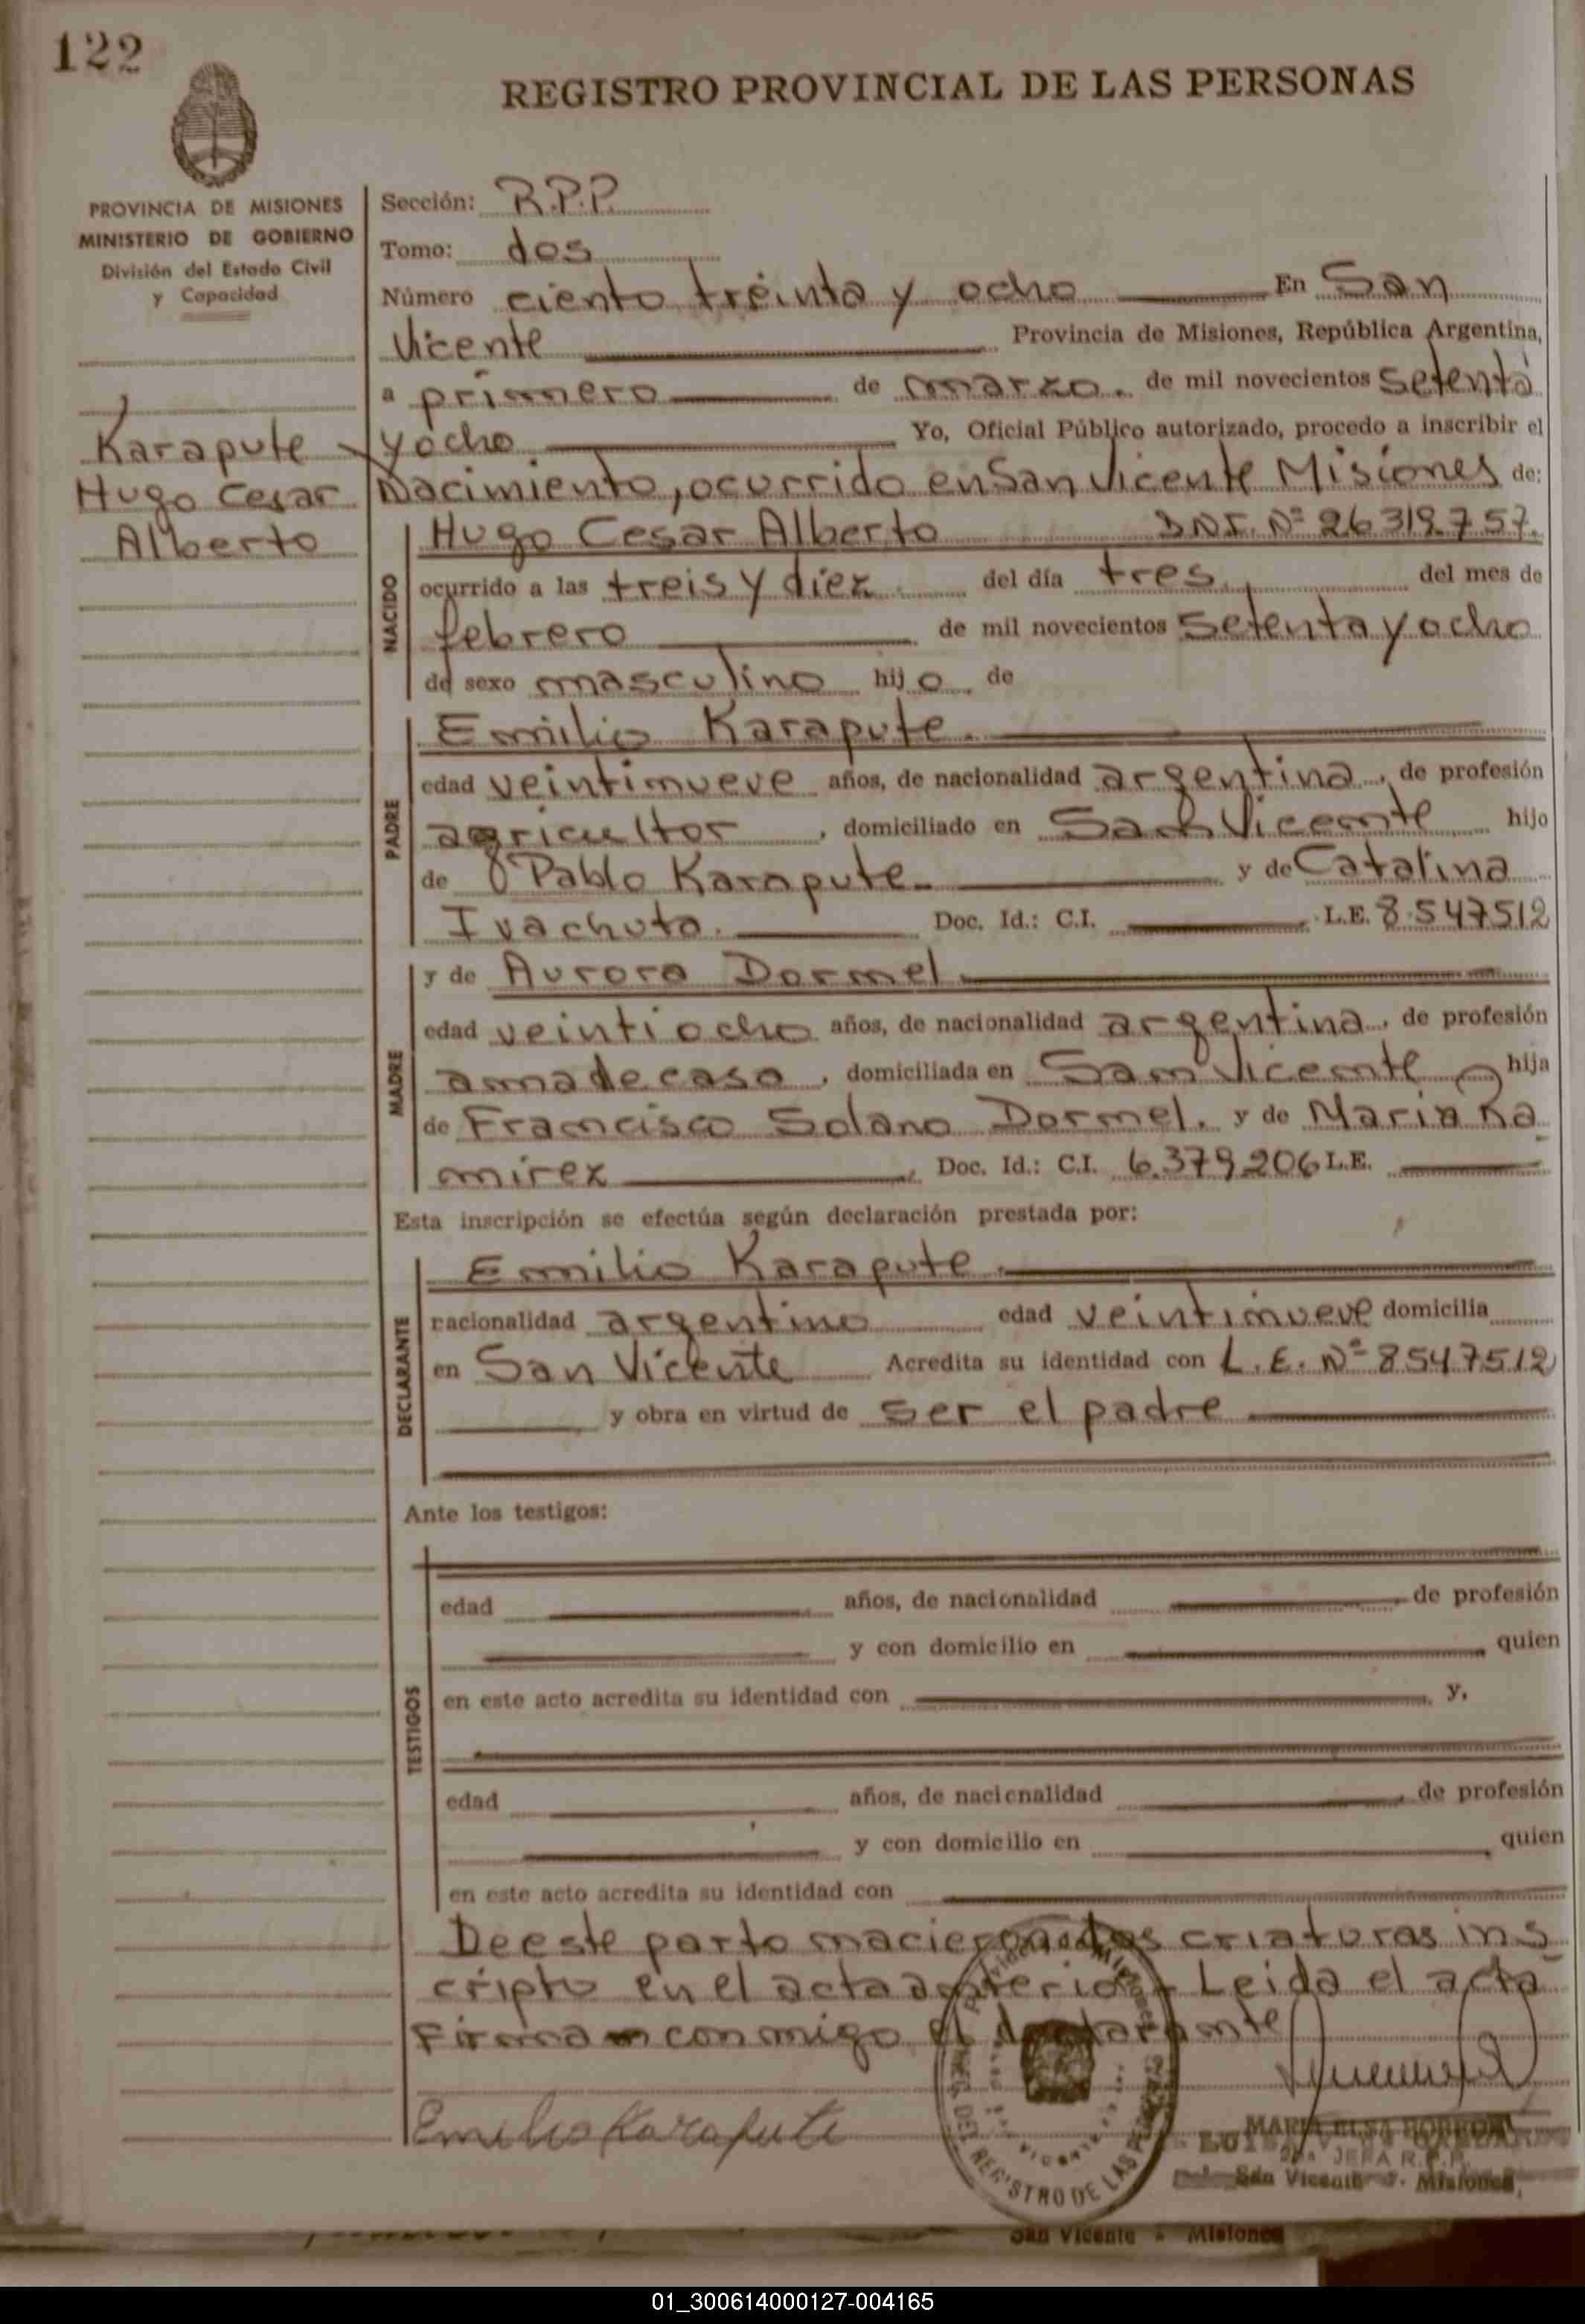 122
REGISTRO PROVINCIAL DE LAS PERSONAS
PROVINCIA DE MISIONES
MINISTERIO DE GOBIERNO
División del Estado Civil
y Capacidad
Karapute
Hugo Cesar
Alberto
Sección: R.P.P.
Tomo: dos
Número ciento treinta y ocho En San
Vicente Provincia de Misiones, República Argentina,
a primero de marzo. de mil novecientos setenta
y ocho Yo, Oficial Público autorizado, procedo a inscribir el
Nacimiento, ocurrido en San Vicente Misiones de:
NACIDO
Hugo Cesar Alberto D.N.I. Nº 26319757.
ocurrido a las treis y diez del día tres del mes de
febrero de mil novecientos setenta y ocho
de sexo masculino hijo de
PADRE
Emilio Karapute.
edad veintinueve años, de nacionalidad argentina, de profesión
agricultor, domiciliado en San Vicente hijo
de Pablo Karapute. y de Catalina
Ivachuta. Doc. Id.: C.I. L.E. 8.547512
MADRE
y de Aurora Dormel.
edad veintiocho años, de nacionalidad argentina, de profesión
ama de casa, domiciliada en San Vicente hija
de Francisco Solano Dormel. y de Maria Ra
mirez, Doc. Id.: C.I. 6.379.206 L.E.
Esta inscripción se efectúa según declaración prestada por:
DECLARANTE
Emilio Karapute.
nacionalidad argentino edad veintinueve domicilia
en San Vicente Acredita su identidad con L.E. Nº 8547512
y obra en virtud de ser el padre
Ante los testigos:
TESTIGOS
edad años, de nacionalidad de profesión
y con domicilio en quien
en este acto acredita su identidad con y,
edad años, de nacionalidad de profesión
y con domicilio en quien
en este acto acredita su identidad con
De este parto nacieron dos criaturas ins
cripto en el acta anterior. Leida el acta
Firman conmigo el declarante
Emilio Karapute
REG. DEL REGISTRO DE LAS
MARIA ELSA
JEFA R.P.P.
San Vicente - Misiones
San Vicente - Misiones
01_300614000127-004165